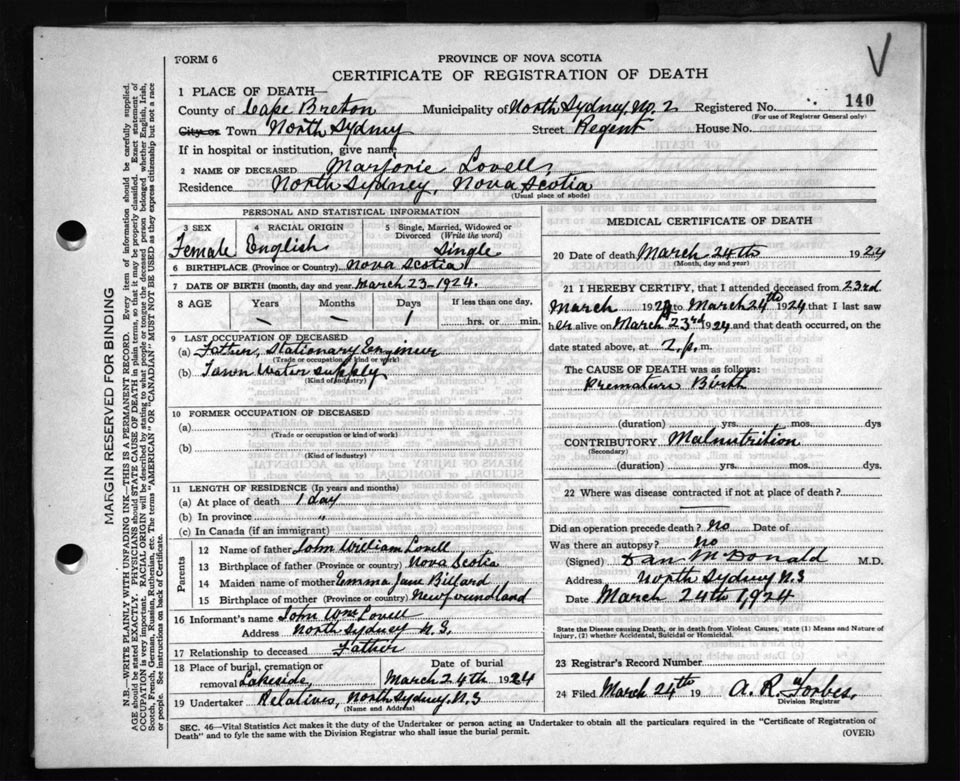 V
FORM 6
PROVINCE OF NOVA SCOTIA
CERTIFICATE OF REGISTRATION OF DEATH
1 PLACE OF DEATH—
County of Cape Breton Municipality of North Sydney, No. 2 Registered No. 140
(For use of Registrar General only)
City or Town North Sydney Street Regent House No.
If in hospital or institution, give name
2 NAME OF DECEASED Marjorie Lovell,
Residence North Sydney, Nova Scotia
(Usual place of abode)
PERSONAL AND STATISTICAL INFORMATION
3 SEX 4 RACIAL ORIGIN 5 Single, Married, Widowed or Divorced (Write the word)
Female English Single
6 BIRTHPLACE (Province or Country) Nova Scotia
7 DATE OF BIRTH (month, day and year) March 23-1924.
8 AGE Years Months Days If less than one day,
— — 1 hrs. or min.
9 LAST OCCUPATION OF DECEASED
(a) Father, Stationary Engineer
(Trade or occupation or kind of work)
(b) Town Water Supply
(Kind of industry)
10 FORMER OCCUPATION OF DECEASED
(a)
(Trade or occupation or kind of work)
(b)
(Kind of industry)
11 LENGTH OF RESIDENCE (In years and months)
(a) At place of death 1 day
(b) In province "
(c) In Canada (if an immigrant)
Parents
12 Name of father John William Lovell
13 Birthplace of father (Province or Country) Nova Scotia
14 Maiden name of mother Emma Jane Billard
15 Birthplace of mother (Province or Country) Newfoundland
16 Informant's name John Wm Lovell
Address North Sydney N.S.
17 Relationship to deceased Father
18 Place of burial, cremation or removal Lakeside, Date of burial March 24th 1924
19 Undertaker Relatives, North Sydney. N.S
(Name and Address)
MEDICAL CERTIFICATE OF DEATH
20 Date of death March 24th 1924
(Month, day and year)
21 I HEREBY CERTIFY, that I attended deceased from 23rd
March 1924 to March 24th 1924 that I last saw
her alive on March 23rd 1924 and that death occurred, on the
date stated above, at 2.p.m.
The CAUSE OF DEATH was as follows:
Premature Birth
(duration) yrs. mos. dys
CONTRIBUTORY Malnutrition
(Secondary)
(duration) yrs. mos. dys.
22 Where was disease contracted if not at place of death?
Did an operation precede death? No Date of
Was there an autopsy? No
(Signed) Dan McDonald M.D.
Address North Sydney N.S
Date March 24th 1924
State the Disease causing Death, or in death from Violent Causes, state (1) Means and Nature of
Injury, (2) whether Accidental, Suicidal or Homicidal.
23 Registrar's Record Number
24 Filed March 24th 19 A. R. Forbes.
Division Registrar
SEC. 46—Vital Statistics Act makes it the duty of the Undertaker or person acting as Undertaker to obtain all the particulars required in the "Certificate of Registration of
Death" and to fyle the same with the Division Registrar who shall issue the burial permit.
(OVER)
MARGIN RESERVED FOR BINDING
N.B.—WRITE PLAINLY WITH UNFADING INK—THIS IS A PERMANENT RECORD. Every item of information should be carefully supplied.
AGE should be stated EXACTLY. PHYSICIANS should STATE CAUSE OF DEATH in plain terms, so that it may be properly classified. Exact statement of
OCCUPATION is very important. RACIAL ORIGIN will be described by stating to what people or tongue the deceased person belonged whether English, Irish,
Scotch, French, German, Russian, Ruthenian, etc. The terms "AMERICAN" or "CANADIAN" MUST NOT BE USED as they express citizenship but not a race
or people. See instructions on back of Certificate.